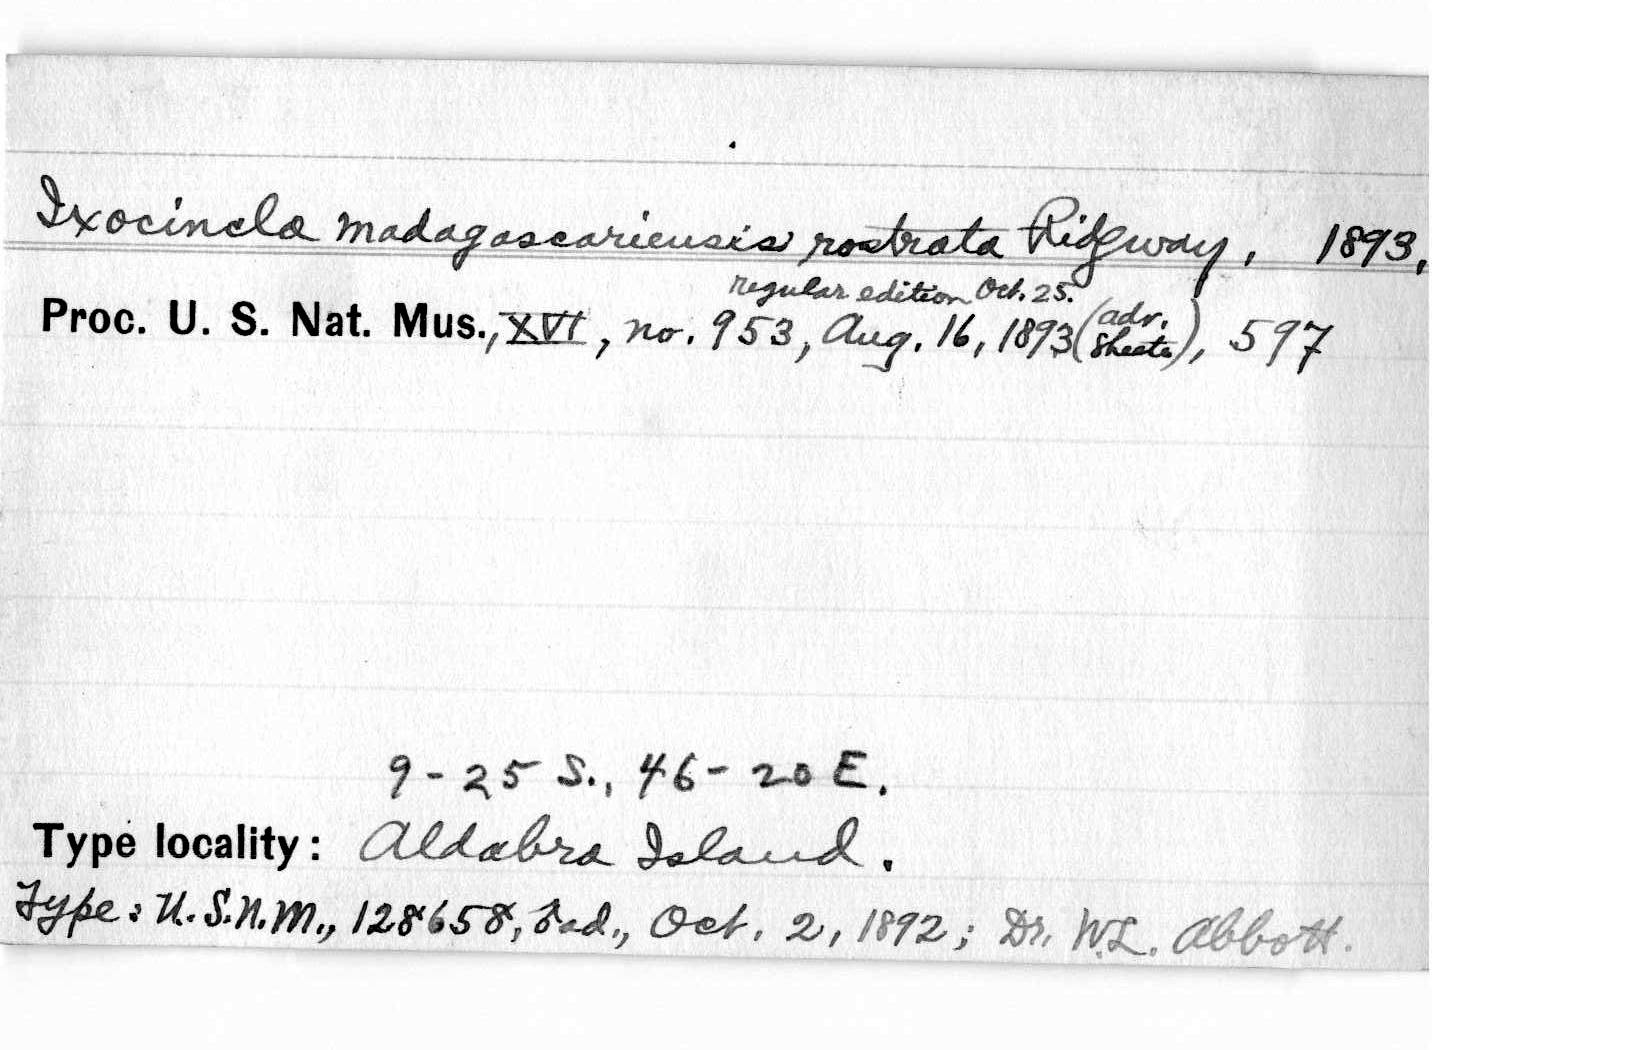 Ixocincla madagascariensis rostrata Ridgway, 1893,
regular edition Oct. 25.
Proc. U. S. Nat. Mus., XVI, no. 953, Aug. 16, 1893 (adv. sheets), 597
9-25 S., 46-20 E.
Type locality: Aldabra Island.
Type: U.S.N.M., 128658, ♂ ad., Oct. 2, 1892; Dr. W.L. Abbott.